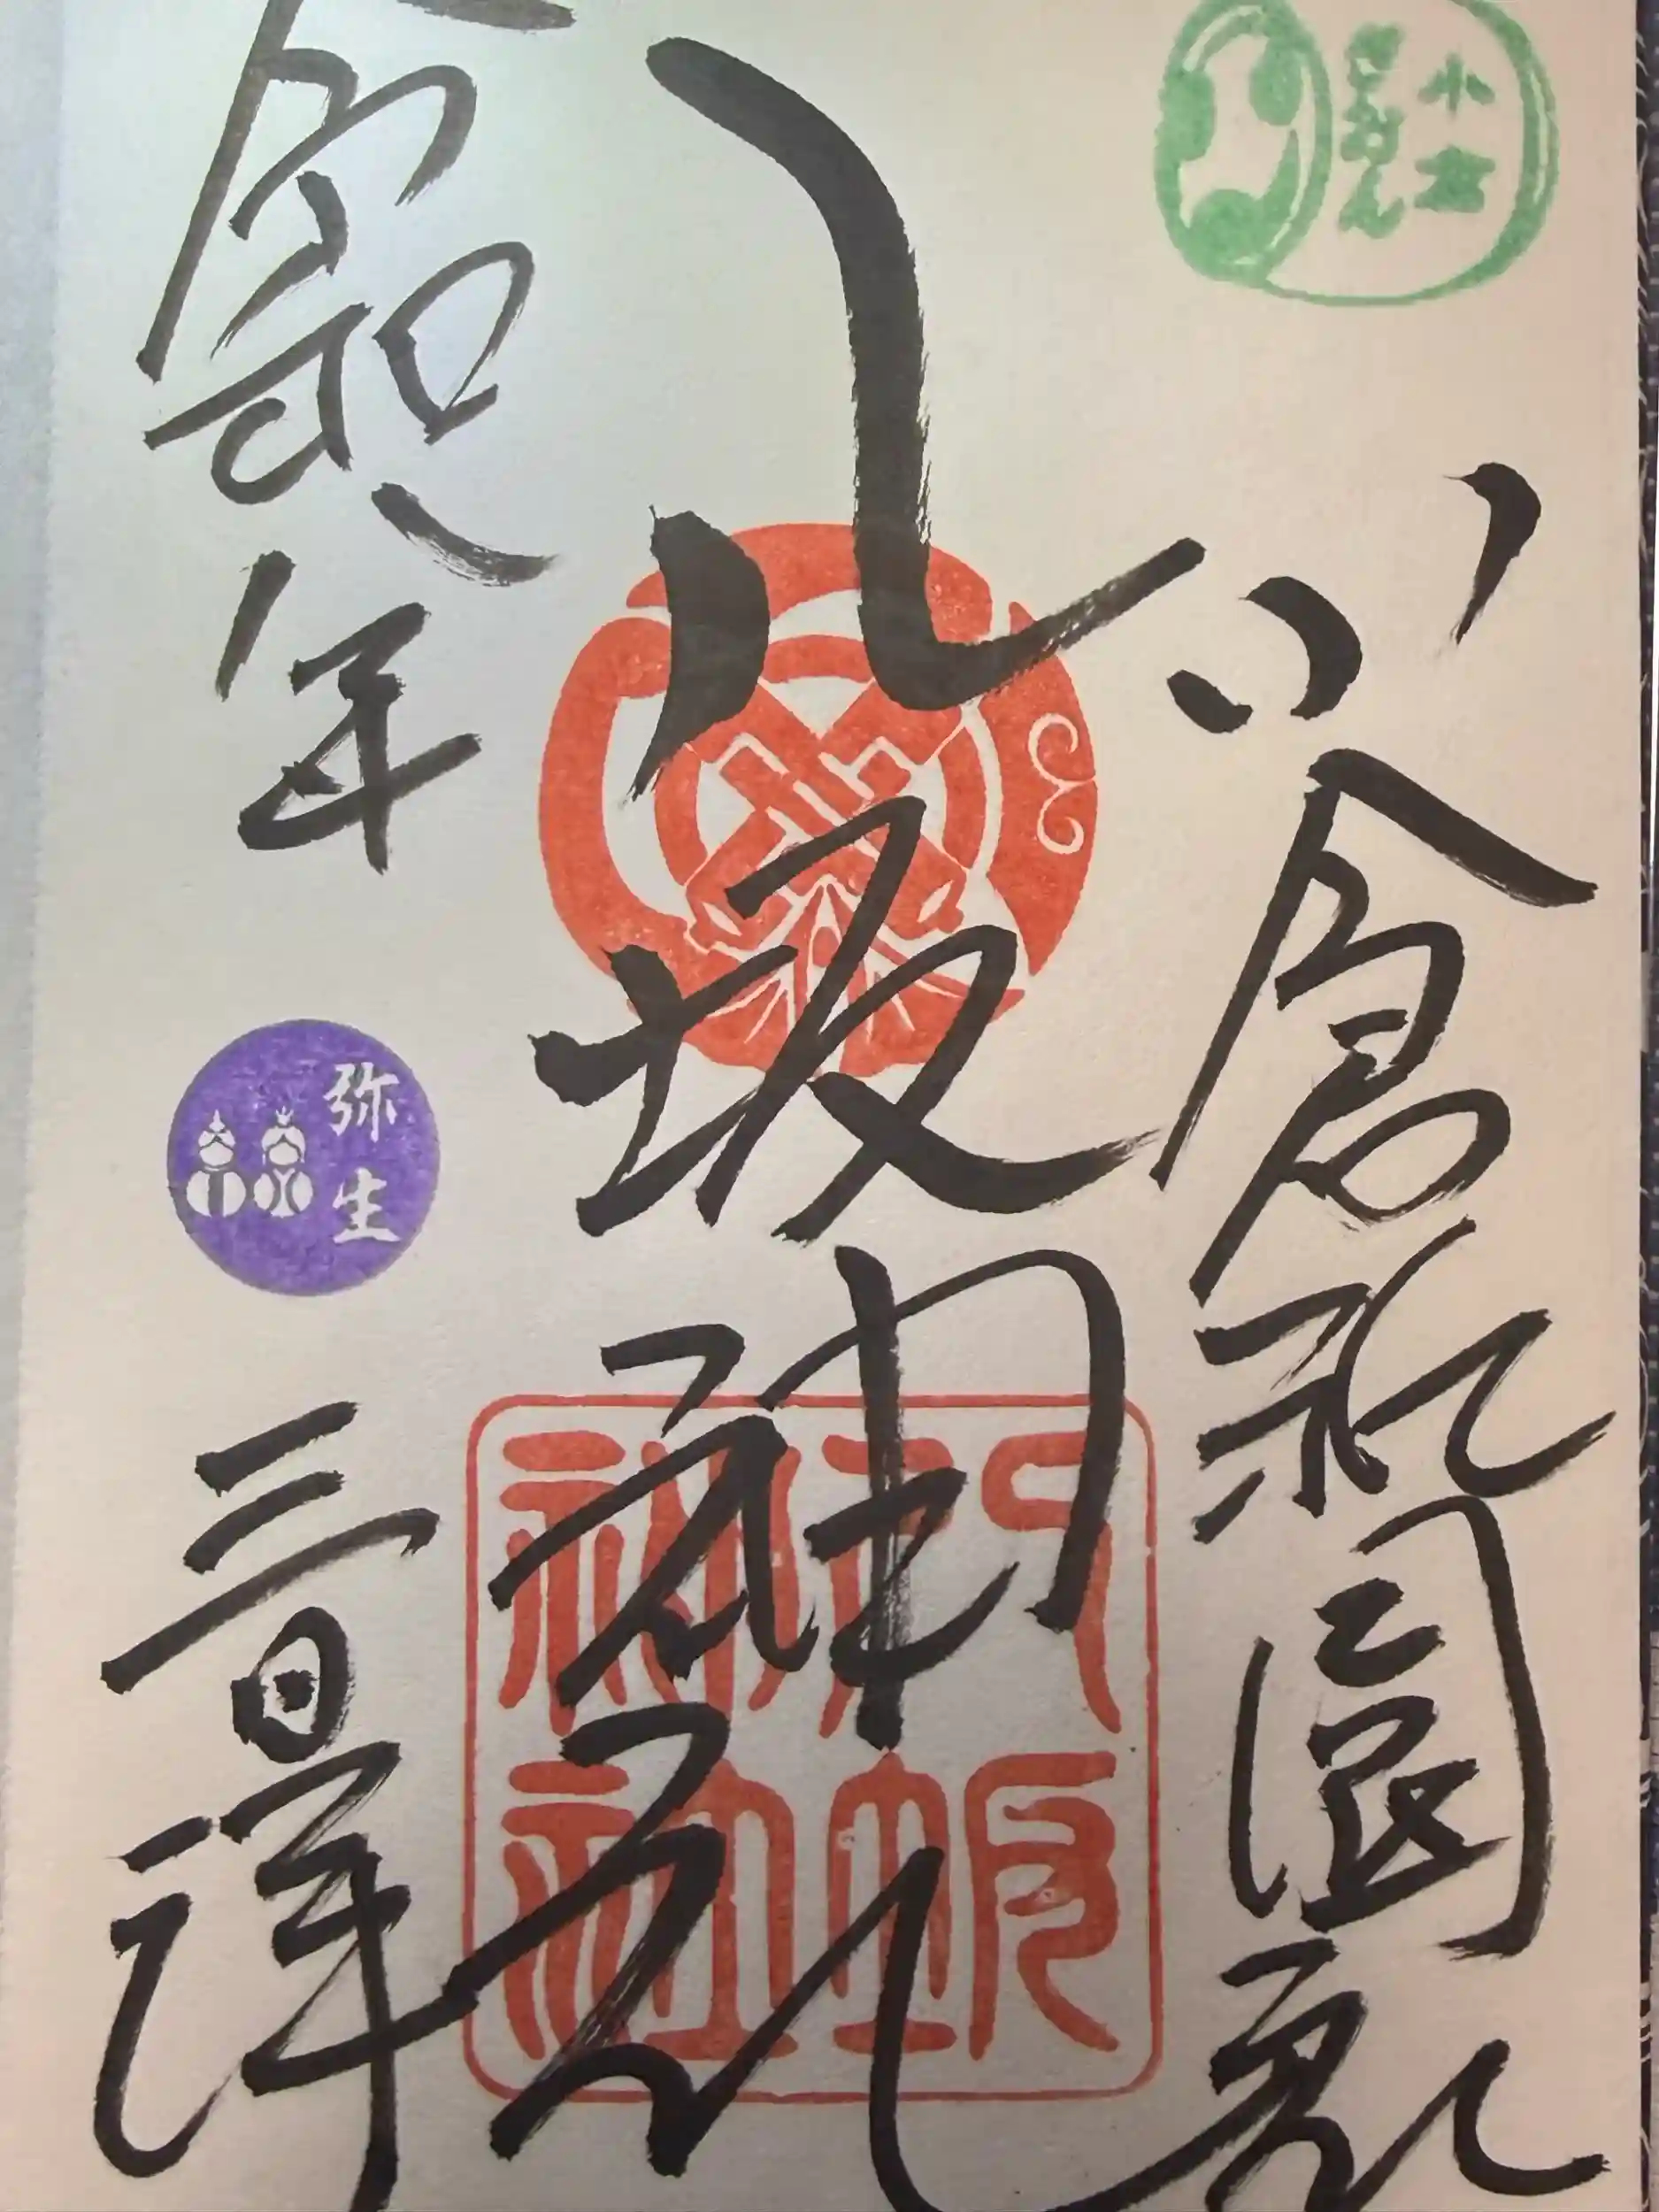 小倉祇園社
八坂神社
八坂
神社
令和八年
弥生
三日拝